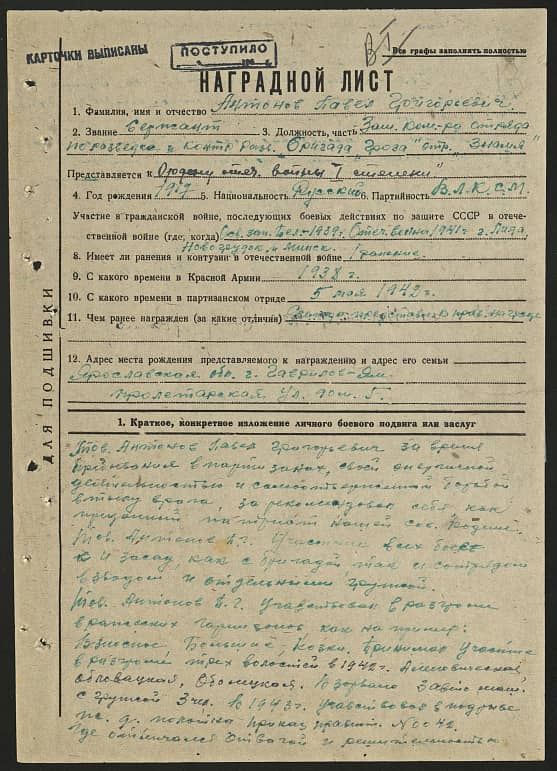 КАРТОЧКИ ВЫПИСАНЫ
ПОСТУПИЛО
Все графы заполнять полностью
НАГРАДНОЙ ЛИСТ
1. Фамилия, имя и отчество Антонов Павел Григорьевич
2. Звание Сержант 3. Должность, часть Зам. ком-ра отряда
по разведке и контр разв. Бригада "Гроза" отр. "Знамя"
Представляется к Ордену отеч. войны I степени"
4. Год рождения 1919 5. Национальность Русский 6. Партийность В.Л.К.С.М.
Участие в гражданской войне, последующих боевых действиях по защите СССР в отече-
ственной войне (где, когда) Бел-1939г. Отеч. война 1941г. г. Лида,
Новогрудок, и Минск.
8. Имеет ли ранения и контузии в отечественной войне 1 ранение.
9. С какого времени в Красной Армии 1938 г.
10. С какого времени в партизанском отряде 5 мая 1942 г.
11. Чем ранее награжден (за какие отличия) прав. награде
12. Адрес места рождения представляемого к награждению и адрес его семьи
Ярославская обл. г. Гаврилов-Ям
Пролетарская ул. дом. 5.
ДЛЯ ПОДШИВКИ
1. Краткое, конкретное изложение личного боевого подвига или заслуг
Тов. Антонов Павел Григорьевич за время
в партизанах, своей
и самоотверженной борьбой
в тылу врага, за рекомендовал себя как
преданный патриот нашей сов. Родине.
Тов. Антонов П.Г. Участник всех боев
и засад, как с бригадой так и с отрядом
взводом и отдельными группой.
Тов. Антонов П.Г. Участвовал в разгроме
вражеских гарнизонов как на пример:
Козки. Принимал участие
в разгроме трех волостей в 1942г.
Оболецкая. Взорвано
с группой 3 чел. В 1943г. участвовал в подрыве
ж. д. полотна приказ № 0042.
Где отличался отвагой и решительностью.